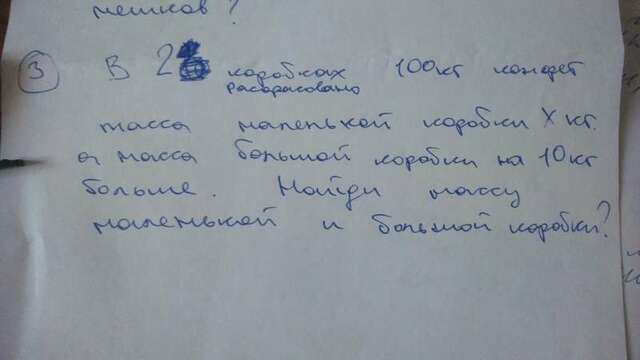 мешков?
③ В 2 коробках 100кг конфет
расфасовано
масса маленькой коробки х кг.
а масса большой коробки на 10кг
больше. Найди массу
маленькой и большой коробки?